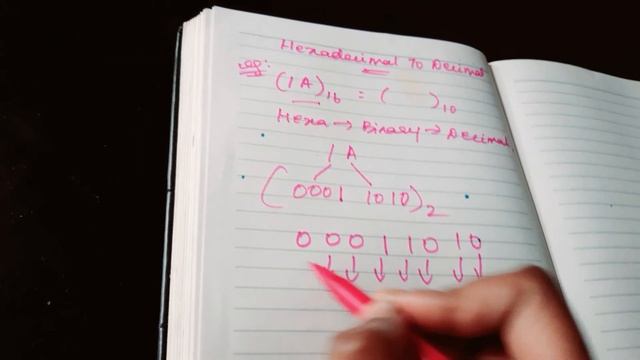 Hexadecimal to Decimal
eg:
(1A)₁₆ = (    )₁₀
Hexa → Binary → Decimal
1 A
(0001 1010)₂
0 0 0 1 1 0 1 0
↓ ↓ ↓ ↓ ↓ ↓ ↓